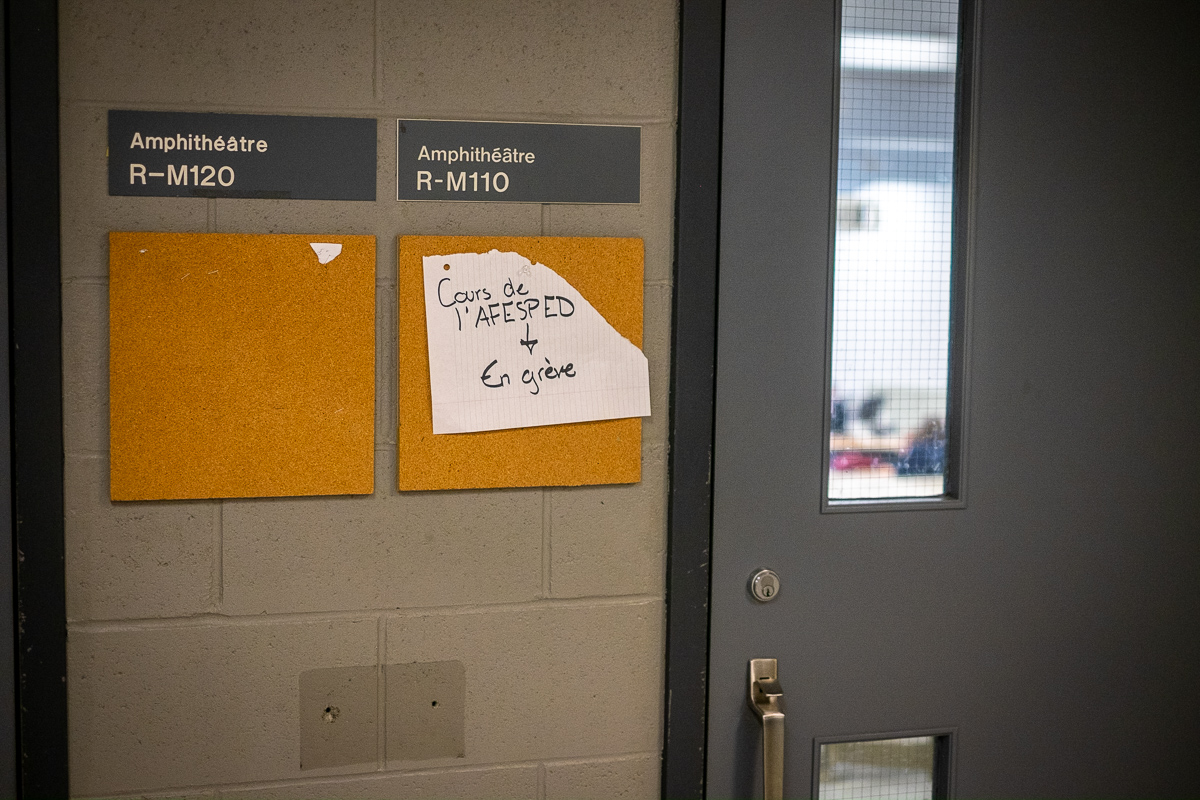 Amphithéâtre
R-M120
Amphithéâtre
R-M110
Cours de
l'AFESPED
En grève